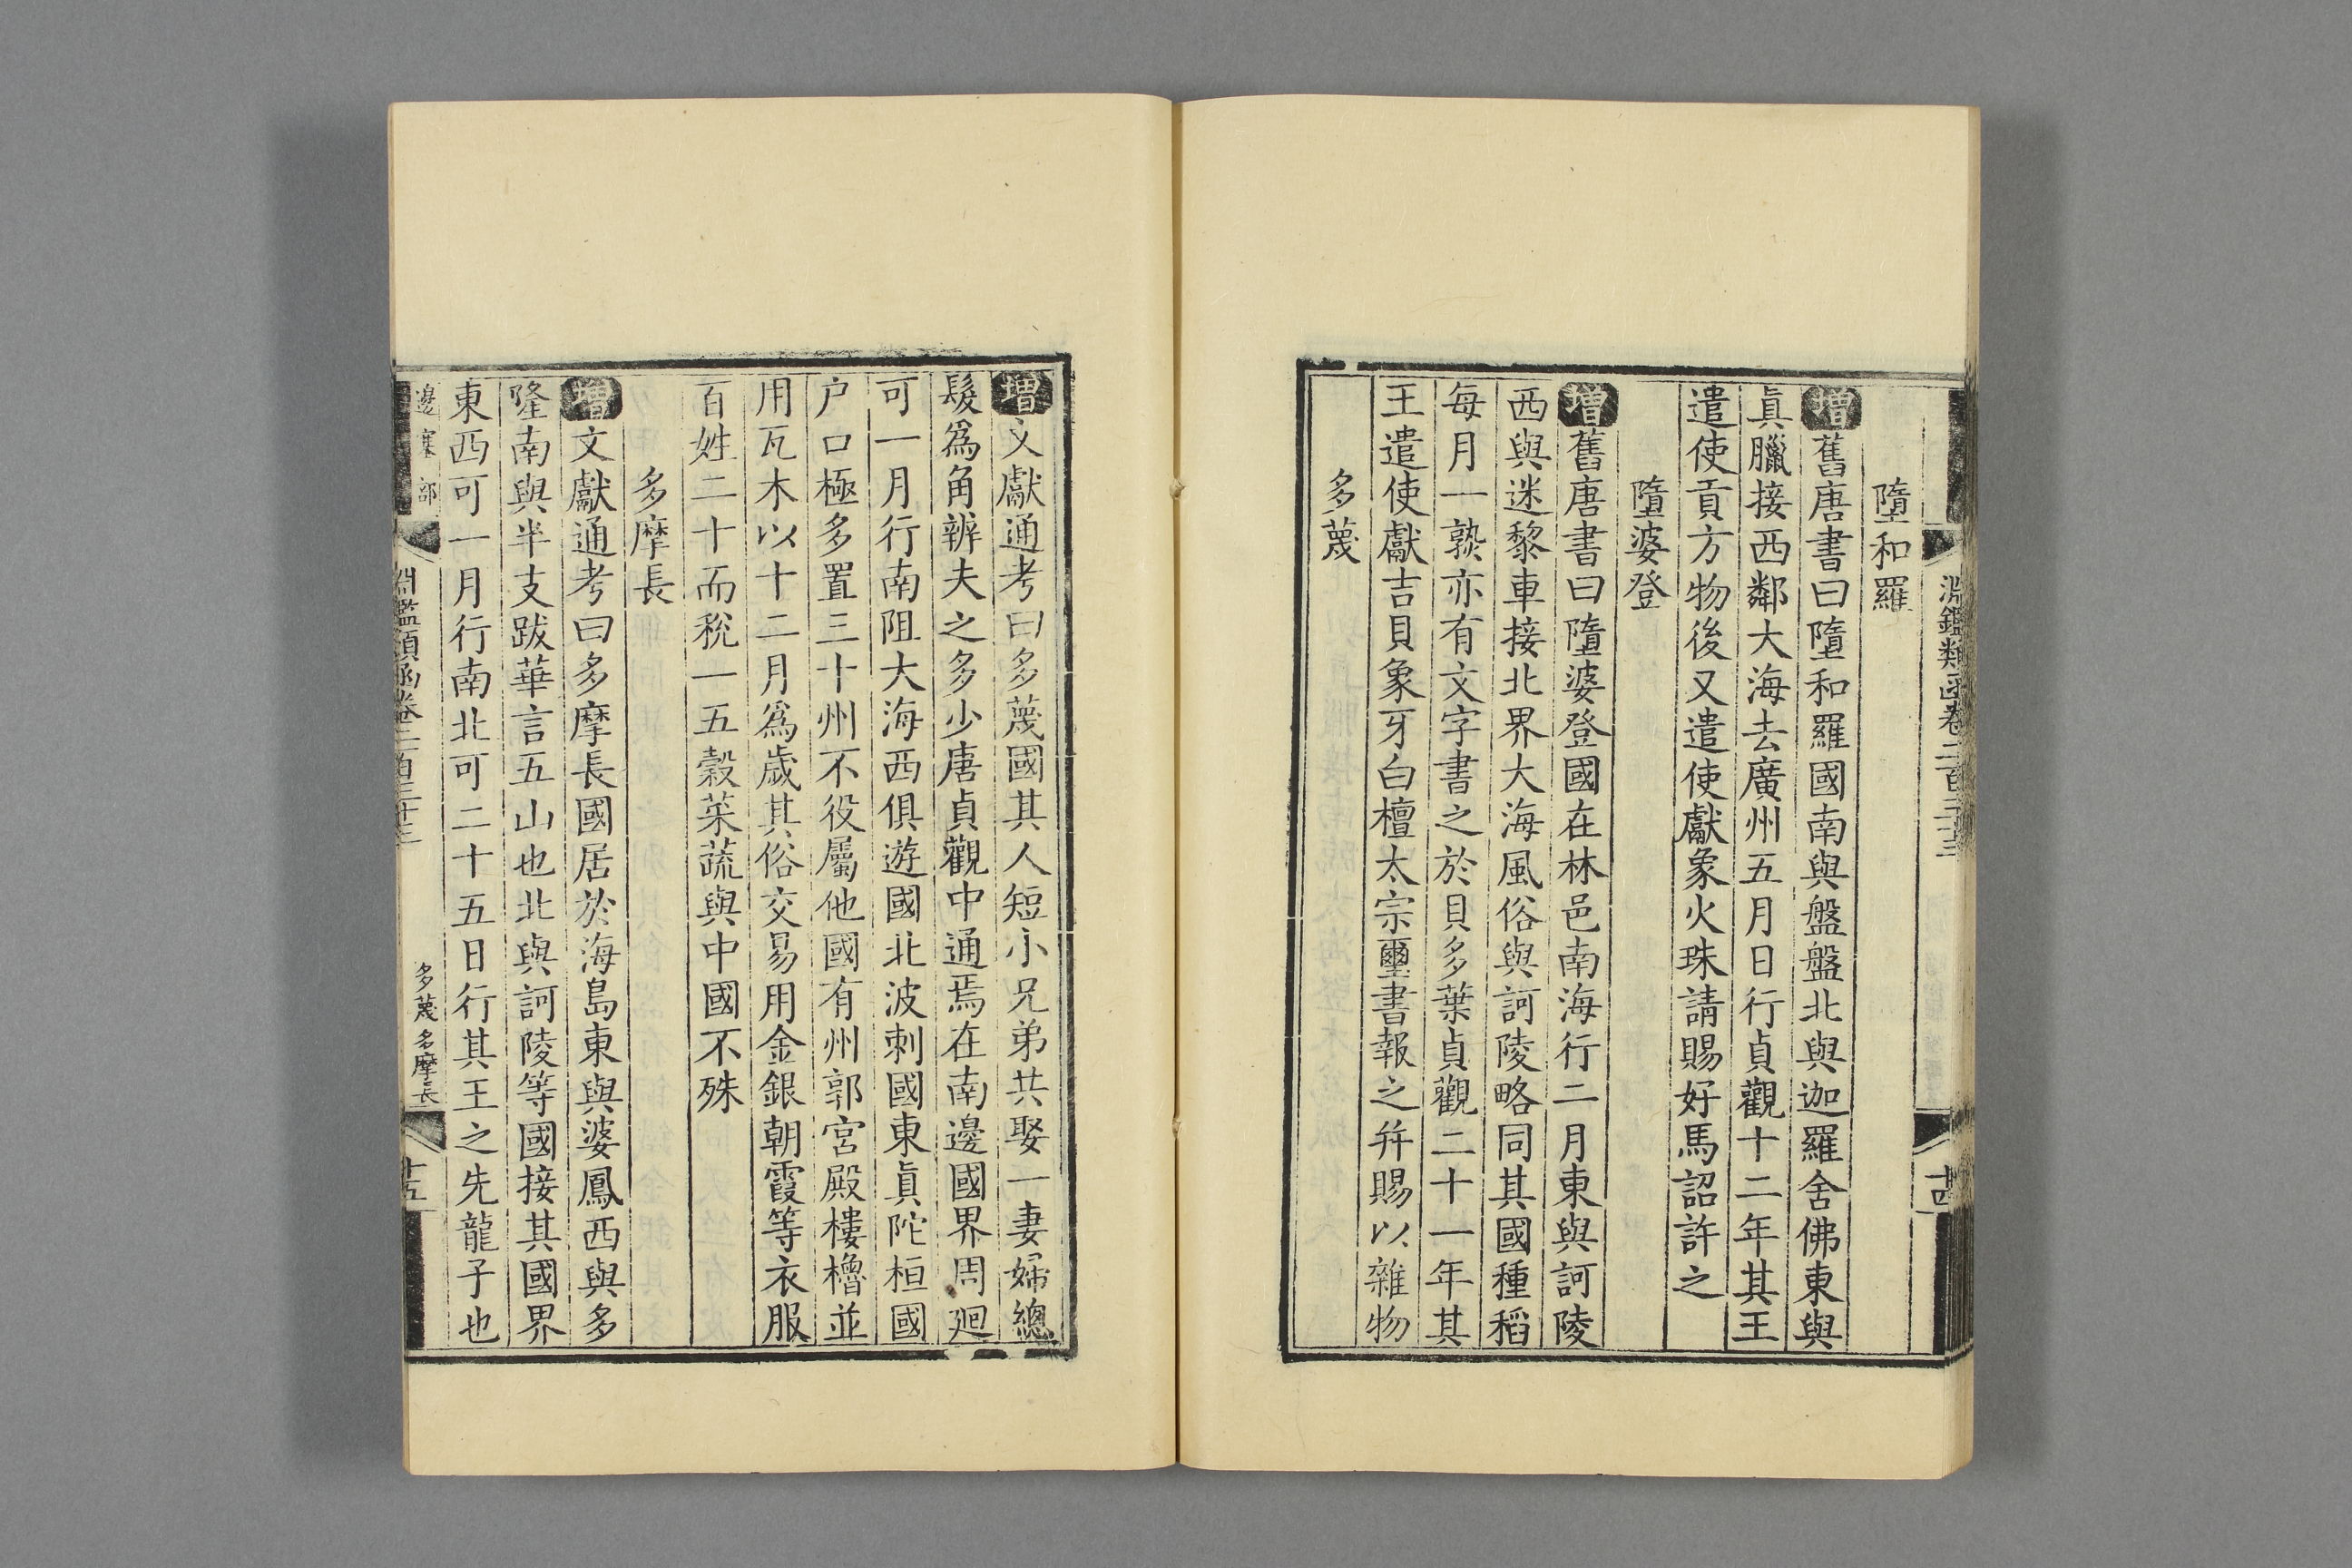 淵鑑類函卷二百三十三
十四
墮和羅
增舊唐書曰墮和羅國南與盤盤北與迦羅舍佛東與
真臘接西鄰大海去廣州五月日行貞觀十二年其王
遣使貢方物後又遣使獻象火珠請賜好馬詔許之
墮婆登
增舊唐書曰墮婆登國在林邑南海行二月東與訶陵
西與迷黎車接北界大海風俗與訶陵略同其國種稻
每月一熟亦有文字書之於貝多葉貞觀二十一年其
王遣使獻吉貝象牙白檀太宗璽書報之并賜以雜物
多蔑
增文獻通考曰多蔑國其人短小兄弟共娶一妻婦總
髮爲角辨夫之多少唐貞觀中通焉在南邊國界周廻
可一月行南阻大海西俱遊國北波刺國東真陀桓國
户口極多置三十州不役屬他國有州郭宮殿樓櫓並
用瓦木以十二月爲歲其俗交易用金銀朝霞等衣服
百姓二十而稅一五榖菜蔬與中國不殊
多摩長
增文獻通考曰多摩長國居於海島東與婆鳳西與多
隆南與半支跋華言五山也北與訶陵等國接其國界
東西可一月行南北可二十五日行其王之先龍子也
邊塞部
淵鑑類函卷二百三十三
多蔑多摩長
十五